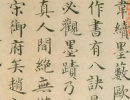 韋續墨藪歐
作書有八訣是
必觀墨蹟乃
真人間絕無
御府